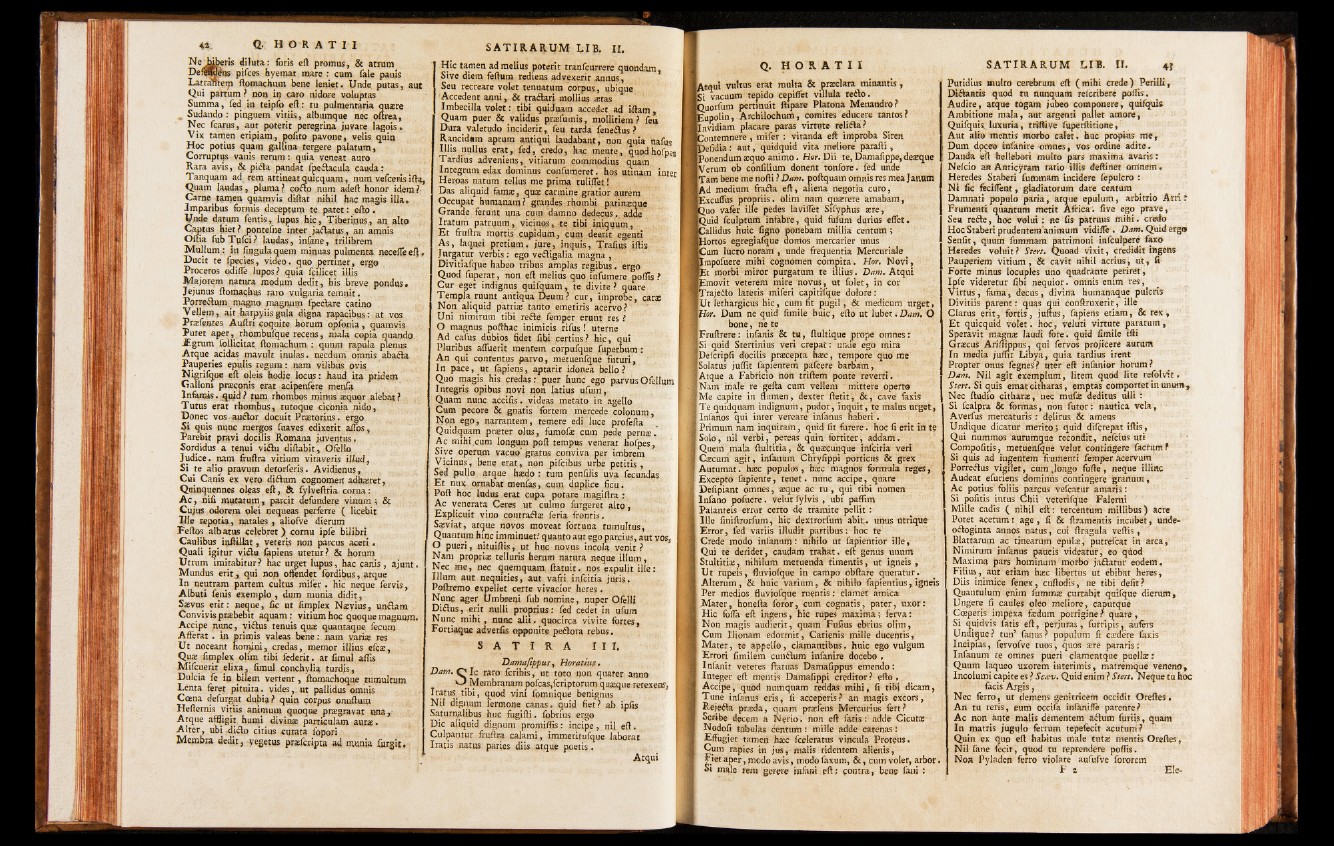 42 Q. HORATII
Ne biberis diluta: foris est promus, & atrum
Defendens pisces hyemat mare: cum sale panis
Latrantem stomachum bene leniet. Unde putas, aut
Qui partum? non in caro nidore voluptas
Summa, sed in teipso est: tu pulmentaria quære
Sudando: pinguem vitiis, albumque nec ostrea,
Nec scarus, aut poterit peregrina juvare lagois.
Vix tamen eripiam, posito pavone, velis quin
Hoc potius quam gallina tergere palatum,
Corruptus vanis rerum: quia veneat auro
Rara avis, & picta pandat spectacula cauda:
Tanquam ad rem attineat quicquam. num vesceris ista,
Quam laudas, pluma? cocto num adest honor idem?
Carne tamen quamvis distat nihil hac magis illa.
Imparibus formis deceptum te patet: esto.
Unde datum sentis, lupus hic, Tiberinus, an alto
Captus hiet? pontesne inter jactatus, an amnis
Ostia sub Tusci? laudas, insane, trilibrem
Mullum: in singula quem minuas pulmenta necesse est.
Ducit te species, video. quo pertinet, ergo
Proceros odisse lupos? quia scilicet illis
Majorem natura modum dedit, his breve pondus.
Jejunus stomachus raro vulgaria temnit.
Porrectum magno magnum spectare catino
Vellem, ait harpyiis gula digna rapacibus: at vos
Præsentes Austri coquite horum opsonia, quamvis
Putet aper, rhombusque recens, mala copia quando
Ægrum sollicitat stomachum: quum rapula plenus
Atque acidas mavult inulas. necdum omnis abacta
Pauperies epulis regum: nam vilibus ovis
Nigrisque est oleis hodie locus: haud ita pridem
Galloni præconis erat acipensere mensa
Infamis. quid? tum rhombos minus æquor alebat?
Tutus erat rhombus, tutoque ciconia nido,
Donec vos auctor docuit Prætorius. ergo
Si quis nunc mergos suaves edixerit assos,
Parebit pravi docilis Romana juventus.
Sordidus a tenui victu distabit, Ofello
Judice. nam frustra vitium vitaveris illud,
Si te alio pravum detorseris. Avidienus,
Cui Canis ex vero dictum cognomen adhæret,
Quinquennes oleas est, & sylvestria corna:
Ac, nisi mutatum, parcit defundere vinum; &
Cujus odorem olei nequeas perferre (licebit
Ille repotia, natales, aliosve dierum
Festos albatus celebret) cornu ipse bilibri
Caulibus instillat, veteris non parcus aceti.
Quali igitur victu sapiens utetur? & horum
Utrum imitabitur? hac urget lupus, hac canis, ajunt.
Mundus erit, qui non offendet sordibus, atque
In neutram partem cultus miser. hic neque servis,
Albuti senis exemplo, dum munia didit,
Sævus erit: neque, sic ut simplex Nævius, unctam
Convivis præbebit aquam: vitium hoc quoque magnum.
Accipe nunc, victus tenuis quæ quantaque secum
Afferat. in primis valeas bene: nam variæ res
Ut noceant homini, credas, memor illius escæ,
Quæ simplex olim tibi sederit. at simul assis
Miscuerit elixa, simul conchylia turdis,
Dulcia se in bilem vertent, stomachoque tumultum
Lenta feret pituita. vides, ut pallidus omnis
Cœna desurgat dubia? quin corpus onustum
Hesternis vitiis animum quoque prægravat una,
Atque affligit humi divinæ particulam auræ.
Alter, ubi dicto citius curata sopori
Membra dedit, vegetus præscripta ad munia surgit.
SATIRARUM LIB. II.
Hic tamen ad melius poterit transcurrere quondam,
Sive diem festum rediens advexerit annus,
Seu recreare volet tenuatum corpus, ubique
Accedent anni, & tractari mollius ætas
Imbecilla volet: tibi quidnam accedet ad istam,
Quam puer & validus præsumis, mollitiem? seu
Dura valetudo inciderit, seu tarda senectus?
Rancidum aprum antiqui laudabant, non quia nasus
Illis nullus erat, sed, credo, hac mente, quod hospes
Tardius adveniens, vitiatum commodius quam
Integrum edax dominus consumeret. hos utinam inter
Heroas natum tellus me prima tulisset!
Das aliquid famæ, quæ carmine gratior aurem
Occupat humanam? grandes rhombi patinæque
Grande ferunt una cum damno dedecus. adde
Iratum patruum, vicinos, te tibi iniquum,
Et frustra mortis cupidum, cum deerit egenti
As, laquei pretium. jure, inquis, Trasius istis
Jurgatur verbis: ego vectigalia magna,
Divitiasque habeo tribus amplas regibus. ergo
Quod superat, non est melius quo insumere possis?
Cur eget indignus quisquam, te divite? quare
Templa ruunt antiqua Deum? cur, improbe, caræ
Non aliquid patriæ tanto emetiris acervo?
Uni nimirum tibi recte semper erunt res?
O magnus posthac inimicis risus! uterne
Ad casus dubios fidet sibi certius? hic, qui
Pluribus assuerit mentem corpusque superbum:
An qui contentus parvo, metuensque futuri,
In pace, ut sapiens, aptarit idonea bello?
Quo magis his credas: puer hunc ego parvus Ofellum
Integris opibus novi non latius usum,
Quam nunc accisis. videas metato in agello
Cum pecore & gnatis fortem mercede colonum,
Non ego, narrantem, temere edi luce profesta
Quidquam præter olus, fumosæ cum pede pernæ.
Ac mihi cum longum post tempus venerat hospes,
Sive operum vacuo gratus conviva per imbrem
Vicinus, bene erat, non piscibus urbe petitis,
Sed pullo atque hædo: tum pensilis uva secundas
Et nux ornabat mensas, cum duplice ficu.
Post hoc ludus erat cupa potare magistra:
Ac venerata Ceres ut culmo surgeret alto,
Explicuit vino contractæ seria frontis.
Sæviat, atque novos moveat fortuna tumultus,
Quantum hinc imminuet? quanto aut ego parcius, aut vos,
O pueri, nituistis, ut huc novus incola venit?
Nam propriæ telluris herum natura neque illum,
Nec me, nec quemquam statuit. nos expulit ille:
Illum aut nequities, aut vafri inscitia juris.
Postremo expellet certe vivacior heres.
Nunc ager Umbreni sub nomine, nuper Ofelli
Dictus, erit nulli proprius: sed cedet in usum
Nunc mihi, nunc alii. quocirca vivite fortes,
Fortiaque adversis opponite pectora rebus.
SATIRA III.
Damasippus, Horatius.
Dam. SIc raro scribis, ut toto non quater anno
Membranam poscas, scriptorum quæque retexens,
Iratus tibi, quod vini somnique benignus
Nil dignum sermone canas. quid fiet? ab ipsis
Saturnalibus huc fugisti. sobrius ergo
Dic aliquid dignum promissis: incipe, nil est.
Culpantur frustra calami, immeritusque laborat
Iratis natus paries diis atque poetis.
Atqui
Q. HORATII
Atqui vultus erat multa & præclara minantis,
Si vacuum tepido cepisset villula tecto.
Quorsum pertinuit stipare Platona Menandro?
Eupolin, Archilochum, comites educere tantos?
Invidiam placare paras virtute relicta?
Contemnere, miser: vitanda est improba Siren
Desidia: aut, quidquid vita meliore parasti,
Ponendum æquo animo. Hor. Dii te, Damasippe, deæque
Verum ob consilium donent tonsore. sed unde
Tam bene me nosti? Dam. postquam omnis res mea Janum
Ad medium fracta est, aliena negotia curo,
Excussus propriis. olim nam quærere amabam,
Quo vafer ille pedes lavisset Sisyphus ære,
Quid sculptum infabre, quid fusum durius esset.
Callidus huic signo ponebam millia centum;
Hortos egregiasque domos mercarier unus
Cum lucro noram, unde frequentia Mercuriale
Imposuere mihi cognomen compita. Hor. Novi,
Et morbi miror purgatum te illius. Dam. Atqui
Emovit veterem mire novus, ut solet, in cor
Trajecto lateris miseri capitisque dolore:
Ut lethargicus hic, cum fit pugil, & medicum urget,
Hor. Dum ne quid simile huic, esto ut lubet. Dam. O
bone, ne te
Frustrere: insanis & tu, stultique prope omnes:
Si quid Stertinius veri crepat: unde ego mira
Descripsi docilis præcepta hæc, tempore quo me
Solatus jussit sapientem pascere barbam,
Atque a Fabricio non tristem ponte reverti.
Nam male re gesta cum vellem mittere operto
Me capite in flumen, dexter stetit, &, cave faxis
Te quidquam indignum, pudor, inquit, te malus urget,
Insanos qui inter vereare insanus haberi.
Primum nam inquiram, quid sit furere. hoc si erit in te
Solo, nil verbi, pereas quin fortiter, addam.
Quem mala stultitia, & quæcunque inscitia veri
Cæcum agit, insanum Chrysippi porticus & grex
Autumat. hæc populos, hæc magnos formula reges,
Excepto sapiente, tenet. nunc accipe, quare
Desipiant omnes, æque ac tu, qui tibi nomen
Insano posuere. velut sylvis, ubi passim
Palanteis error certo de tramite pellit:
Ille sinistrorsum, hic dextrorsum abit. unus utrique
Error, sed variis illudit partibus: hoc te
Crede modo insanum: nihilo ut sapientior ille,
Qui te deridet, caudam trahat. est genus unum
Stultitiæ, nihilum metuenda timentis, ut igneis,
Ut rupeis, fluviosque in campo obstare queratur.
Alterum, & huic varium, & nihilo sapientius, igneis
Per medios fluviosque ruentis: clamet amica
Mater, honesta soror, cum cognatis, pater, uxor:
Hic fossa est ingens, hic rupes maxima: serva:
Non magis audierit, quam Fufius ebrius olim,
Cum Ilionam edormit, Catienis mille ducentis,
Mater, te appello, clamantibus. huic ego vulgum
Errori similem cunctum insanire docebo.
Insanit veteres statuas Damasippus emendo:
Integer est mentis Damasippi creditor? esto.
Accipe, quod nunquam reddas mihi, si tibi dicam,
Tune insanus eris, si acceperis? an magis excors,
Rejecta præda, quam præsens Mercurius fert?
Scribe decem a Nerio. non est satis: adde Cicutæ
Nodosi tabulas centum: mille adde catenas:
Effugiet tamen hæc sceleratus vincula Proteus.
Cum rapies in jus, malis ridentem alienis,
Fiet aper, modo avis, modo saxum, &, cum volet, arbor.
Si male rem gerere insani est: contra, bene sani:
SATIRARUM LIB. II. 43
Putidius multo cerebrum est (mihi crede) Perilli,
Dictantis quod tu nunquam rescribere possis.
Audire, atque togam jubeo componere, quisquis
Ambitione mala, aut argenti pallet amore,
Quisquis luxuria, tristive superstitione,
Aut alio mentis morbo calet, huc propius me,
Dum doceo insanire omnes, vos ordine adite.
Danda est hellebori multo pars maxima avaris:
Nescio an Anticyram ratio illis destinet omnem.
Heredes Staberi summam incidere sepulcro:
Ni sic fecissent, gladiatorum dare centum
Damnati populo paria, atque epulum, arbitrio Arri:
Frumenti quantum metit Africa. sive ego prave,
Seu recte, hoc volui: ne sis patruus mihi. credo
Hoc Staberi prudentem animum vidisse. Dam. Quid ergo
Sensit, quum summam patrimoni insculpere saxo
Heredes voluit? Stert. Quoad vixit, credidit ingens
Pauperiem vitium, & cavit nihil acrius, ut, si
Forte minus locuples uno quadrante periret,
Ipse videretur sibi nequior. omnis enim res,
Virtus, fama, decus, divina humanaque pulcris
Divitiis parent: quas qui construxerit, ille
Clarus erit, fortis, justus, sapiens etiam, & rex,
Et quicquid volet. hoc, veluti virtute paratum,
Speravit magnæ laudi fore. quid simile isti
Græcus Aristippus, qui servos projicere aurum
In media jussit Libya, quia tardius irent
Propter onus segnes? uter est insanior horum?
Dam. Nil agit exemplum, litem quod lite resolvit.
Stert. Si quis emat citharas, emptas comportet in unum,
Nec studio citharæ, nec musæ deditus ulli:
Si scalpra & formas, non sutor: nautica vela,
Aversus mercaturis: delirus & amens
Undique dicatur merito; quid discrepat istis,
Qui nummos aurumque recondit, nescius uti
Compositis, metuensque velut contingere sactum?
Si quis ad ingentem frumenti semper acervum
Porrectus vigilet, cum longo fuste, neque illinc
Audeat esuriens dominus contingere granum,
Ac potius foliis parcus vescatur amaris:
Si positis intus Chii veterisque Falerni
Mille cadis (nihil est: tercentum millibus) acre
Potet acetum: age, si & stramentis incubet, unde-
octoginta annos natus, cui stragula vestis,
Blattarum ac tinearum epulæ, putrescat in arca,
Nimirum insanus paucis videatur, eo quod
Maxima pars hominum morbo jactatur eodem.
Filius, aut etiam hæc libertus ut ebibat heres,
Diis inimice senex, custodis, ne tibi desit?
Quantulum enim summæ curtabit quisque dierum,
Ungere si caules oleo meliore, caputque
Cœperis impexa fœdum porrigine? quare,
Si quidvis satis est, perjuras, surripis, aufers
Undique? tun' sanus? populum si cædere saxis
Incipias, servosve tuos, quos ære pararis:
Insanum te omnes pueri clamentque puellæ:
Quum laqueo uxorem interimis, matremque veneno,
Incolumi capite es? Scæv. Quid enim? Stert. Neque tu hoc
facis Argis,
Nec ferro, ut demens genitricem occidit Orestes.
An tu reris, eum occisa insanisse parente?
Ac non ante malis dementem actum furiis, quam
In matris jugulo ferrum tepefecit acutum?
Quin ex quo est habitus male tutæ mentis Orestes,
Nil sane fecit, quod tu reprendere possis.
Non Pyladen ferro violare aususve sororem
F 2 Ele-